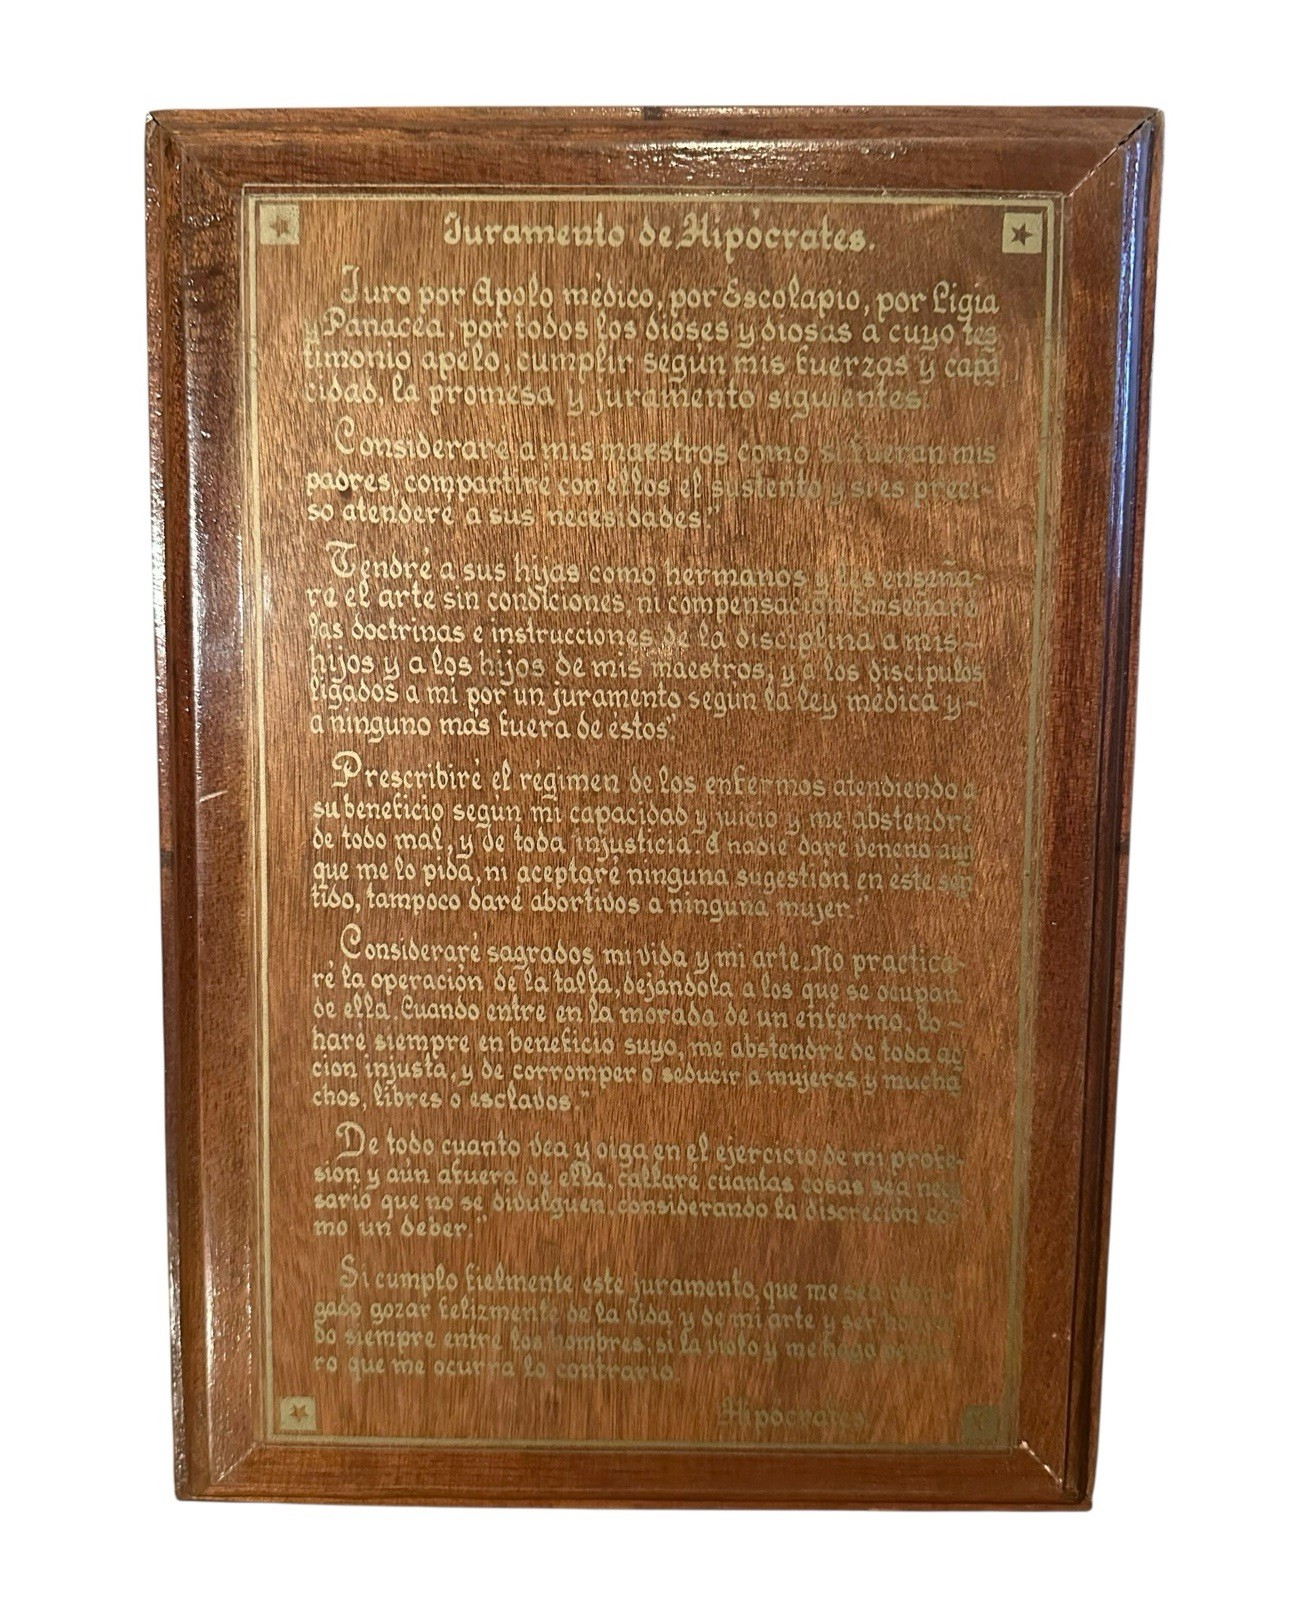 Juramento de Hipócrates.
Juro por Apolo médico, por Escolapio, por Ligia
y Panacea, por todos los dioses y diosas a cuyo tes
timonio apelo, cumplir según mis fuerzas y capa
cidad, la promesa y juramento siguientes:
Considerare a mis maestros como si fueran mis
padres, compartiré con ellos el sustento y si es preci-
so atenderé a sus necesidades."
Tendré a sus hijas como hermanos y les enseña-
re el arte sin condiciones, ni compensación. Enseñaré
las doctrinas e instrucciones de la disciplina a mis-
hijos y a los hijos de mis maestros, y a los discípulos
ligados a mi por un juramento según la ley médica y-
a ninguno más fuera de estos."
Prescribiré el régimen de los enfermos atendiendo a
su beneficio según mi capacidad y juicio y me abstendré
de todo mal, y de toda injusticia. A nadie daré veneno aun
que me lo pida, ni aceptaré ninguna sugestión en este sen
tido, tampoco daré abortivos a ninguna mujer."
Consideraré sagrados mi vida y mi arte. No practica-
ré la operación de la talla, dejándola a los que se ocupan
de ella. Cuando entre en la morada de un enfermo, lo-
haré siempre en beneficio suyo, me abstendré de toda ac
cion injusta, y de corromper o seducir a mujeres y mucha
chos, libres o esclavos."
De todo cuanto vea y oiga en el ejercicio de mi profe-
sion y aún afuera de ella, callaré cuantas cosas sea nece
sario que no se divulguen, considerando la discreción co-
mo un deber."
Si cumplo fielmente este juramento, que me sea
gado gozar felizmente de la vida y de mi arte y ser honra
do siempre entre los hombres, si la violo y me hago
ro que me ocurra lo contrario.
Hipócrates.